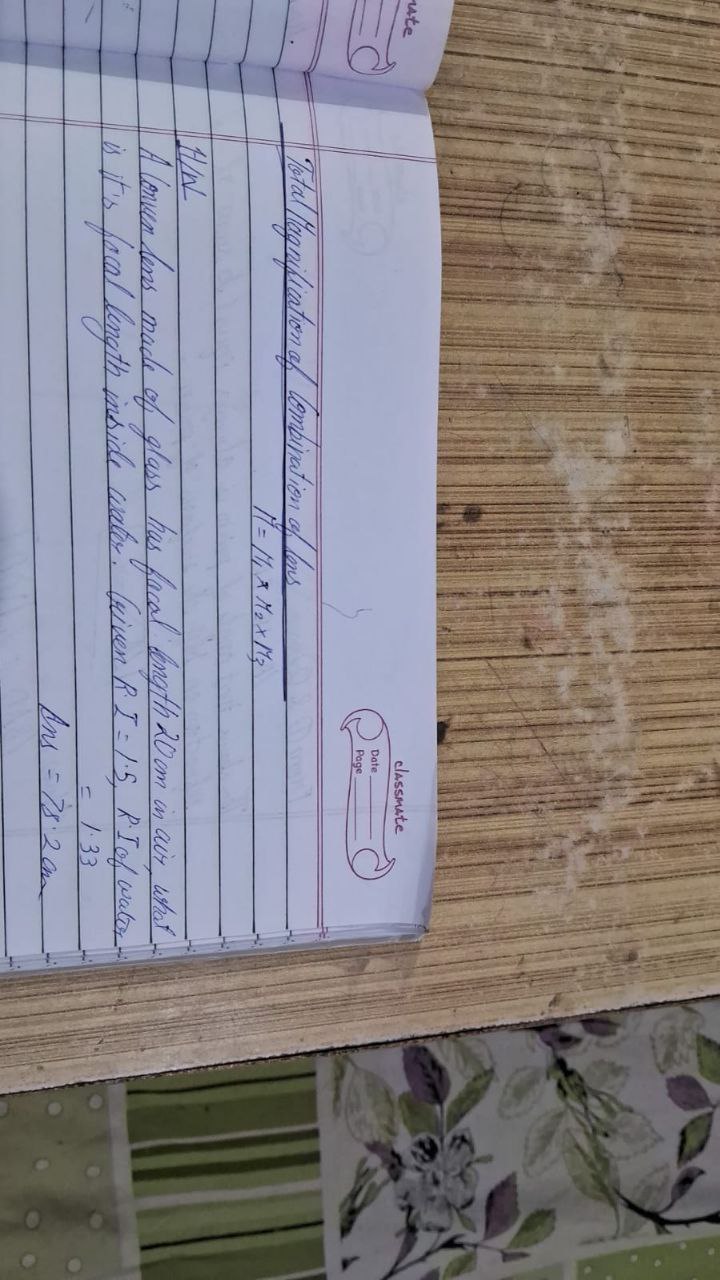 classmate
Date
Page
Total Magnification of Combination of lens
M = M₁ × M₂ × M₃
H/W
A convex lens made of glass has focal length 20 cm in air, what
is it's focal length inside water. Given R I = 1.5, R I of water
= 1.33
Ans = 78.2 cm